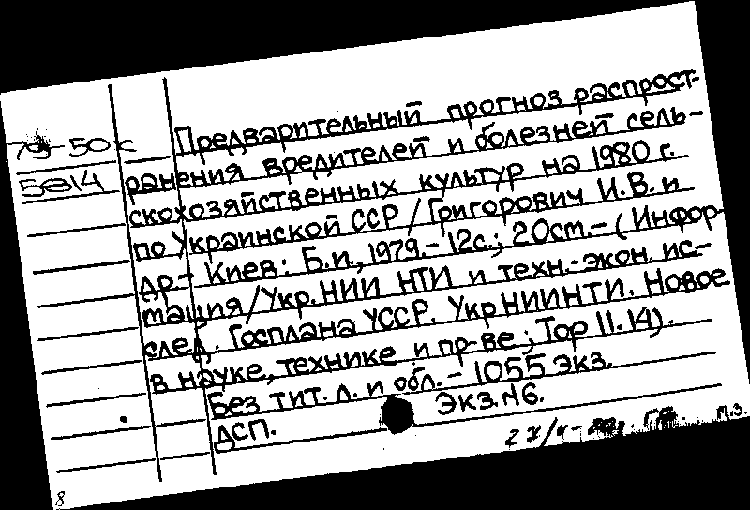 50к Предварительный прогноз распрост-
5814 ранения вредителей и болезней сель-
скохозяйственных культур на 1980 г.
по Украинской ССР / Григорович И.В. и
др. - Киев: Б.и., 1979. - 12с.; 20см. - (Инфор-
мация/Укр. НИИ НТИ и техн.-экон. ис-
след. Госплана УССР. УкрНИИНТИ. Новое
в науке, технике и пр-ве; Тор 11.14).
Без тит. л. и обл. - 1055 экз.
Экз. №6.
ДСП.
М.З.
8